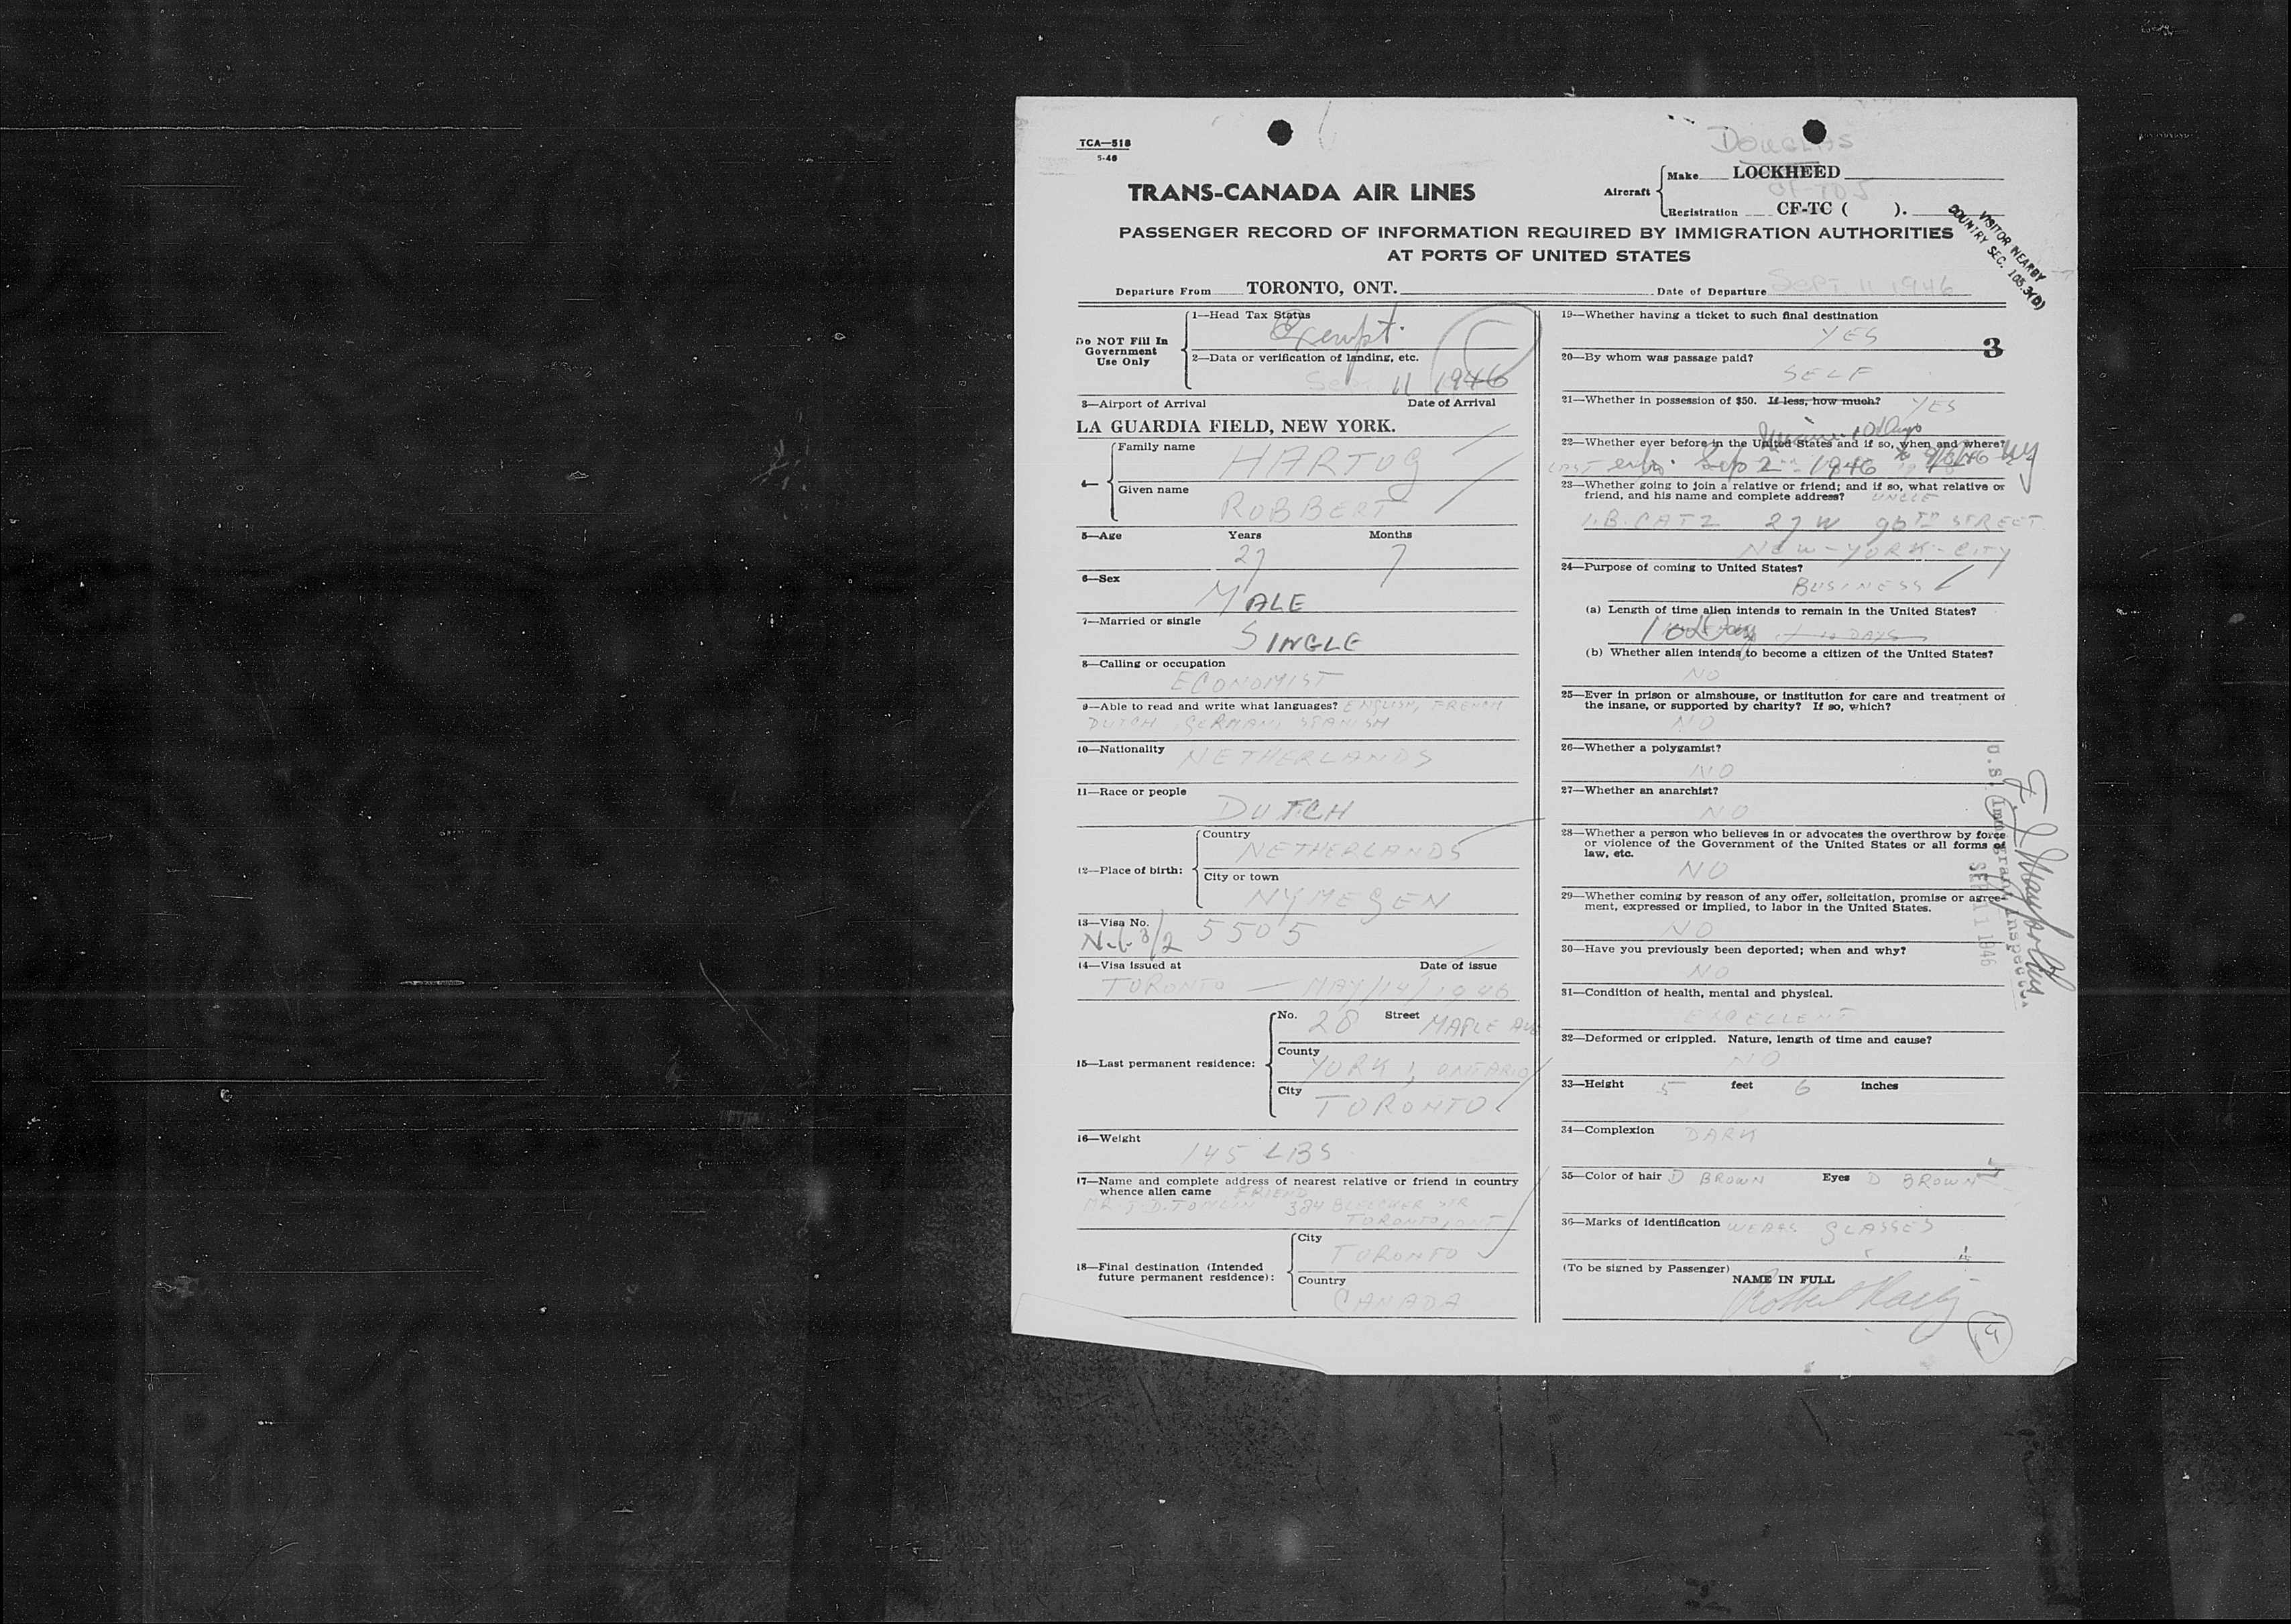 TCA—518
5-46
DOUGLAS
Aircraft
Make LOCKHEED
CF-TDJ
Registration CF-TC ( ).
TRANS-CANADA AIR LINES
VISITOR NEARBY
COUNTRY SEC. 105.3(D)
PASSENGER RECORD OF INFORMATION REQUIRED BY IMMIGRATION AUTHORITIES
AT PORTS OF UNITED STATES
Departure From TORONTO, ONT. Date of Departure SEPT 11 1946
Do NOT Fill In
Government
Use Only
1—Head Tax Status
Exempt.
2—Data or verification of landing, etc.
Sep 11 1946
3—Airport of Arrival Date of Arrival
LA GUARDIA FIELD, NEW YORK.
4—
Family name
HARTOG
Given name
ROBBERT
5—Age Years Months
27 7
6—Sex
MALE
7—Married or single
SINGLE
8—Calling or occupation
ECONOMIST
9—Able to read and write what languages? ENGLISH, FRENCH
DUTCH, GERMAN, SPANISH
10—Nationality NETHERLANDS
11—Race or people
DUTCH
12—Place of birth:
Country
NETHERLANDS
City or town
NYMEGEN
13—Visa No.
3/2 5505
14—Visa issued at Date of issue
TORONTO — MAY/14/1946
15—Last permanent residence:
No. 28 Street MAPLE AVE
County
YORK, ONTARIO
City
TORONTO
16—Weight
145 LBS
17—Name and complete address of nearest relative or friend in country
whence alien came FRIEND
MR. J.D. TOMLIN 384 BLEECKER STR
TORONTO, ONT
18—Final destination (Intended
future permanent residence):
City
TORONTO
Country
CANADA
19—Whether having a ticket to such final destination
YES
3
20—By whom was passage paid?
SELF
21—Whether in possession of $50. If less, how much? YES
10 Days
22—Whether ever before in the United States and if so, when and where?
LAST Sep 2 1946 to 9/8/46 NY
23—Whether going to join a relative or friend; and if so, what relative or
friend, and his name and complete address? UNCLE
I.B. CATZ 27 W 96TH STREET
NEW-YORK-CITY
24—Purpose of coming to United States?
BUSINESS
(a) Length of time alien intends to remain in the United States?
10 Days DAYS
(b) Whether alien intends to become a citizen of the United States?
NO
25—Ever in prison or almshouse, or institution for care and treatment of
the insane, or supported by charity? If so, which?
NO
26—Whether a polygamist?
NO
27—Whether an anarchist?
NO
28—Whether a person who believes in or advocates the overthrow by force
or violence of the Government of the United States or all forms of
law, etc.
NO
29—Whether coming by reason of any offer, solicitation, promise or agree-
ment, expressed or implied, to labor in the United States.
NO
30—Have you previously been deported; when and why?
NO
31—Condition of health, mental and physical.
EXCELLENT
32—Deformed or crippled. Nature, length of time and cause?
NO
33—Height 5 feet 6 inches
34—Complexion DARK
35—Color of hair D BROWN Eyes D BROWN
36—Marks of identification WEARS GLASSES
(To be signed by Passenger)
NAME IN FULL
Robbert Hartog
U.S. Immigrant Inspector
SEP 11 1946